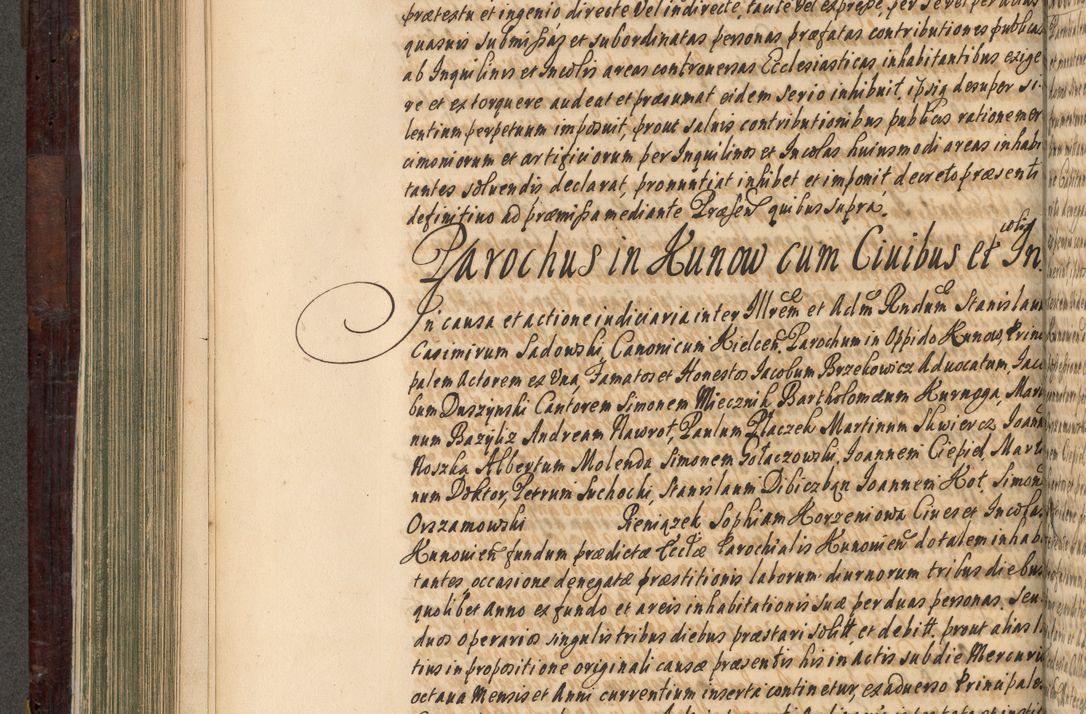 prætextu et ingenio directe vel indirecte, taute vel expresse, per se vel per alias
quasuis submissas et subordinatas personas præfatas contributiones publicas
ab Inquilinis et Incolis areas controuersas Ecclesiasticas inhabitantibus exige
re et extorquere audeat et præsumat eidem serio inhibuit, ipsiq desuper si-
lentium perpetuum imposuit, prout saluis contributionibus publicis ratione mer
cimoniorum et artificiorum per Inquilinos et Incolas huiusmodi areas inhabi
tantes soluendis declarat, pronuntiat inhibet et imponit decreto præsenti
definitiuo ad præmissa mediante Præsen quibus supra.
Parochus in Kunow cum Ciuibus et In
colis
In causa et actione iudiciaria inter Illrem et Adm Rndum Stanislaum
Casimirum Sadowski, Canonicum Kielcen Parochum in Oppido Kunow, Princi
palem Actorem ex Vna, Famatos et Honestos Jacobum Brzekowicz Aduocatum, Jaco
bum Duszynski Cantorem Simonem Miecznik Bartholomæum Kurnyga, Marti
num Bazyliz Andream Nawrot, Paulum Ptaczek Martinum Skwiercz Joann
Roszka Albertum Molenda Simonem Gołaczowski, Joannem Ciepiel, Marti
num Doktor, Petrum Suchocki, Stanislaum Dibiczban Joannem Kot, Simonem
Orszamowski Reniązek Sophiam Korzeniowa Ciues et Incolas
Kunouien fundum prædictæ Ecclæ Parochialis Kunouien dotalem inhabi
tantes, occasione denegatæ præstitionis laborum diurnorum tribus diebus
quolibet anno ex fundo et areis inhabitationis suæ per duas personas, seu
duos operarios singulis tribus diebus præstari solitt et debitt. prout alias la
tius in propositione originali causæ præsentis his in Actis sub die Mercurii
octaua Mensis et Anni currentium inserta continetur, ex aduerso Principales